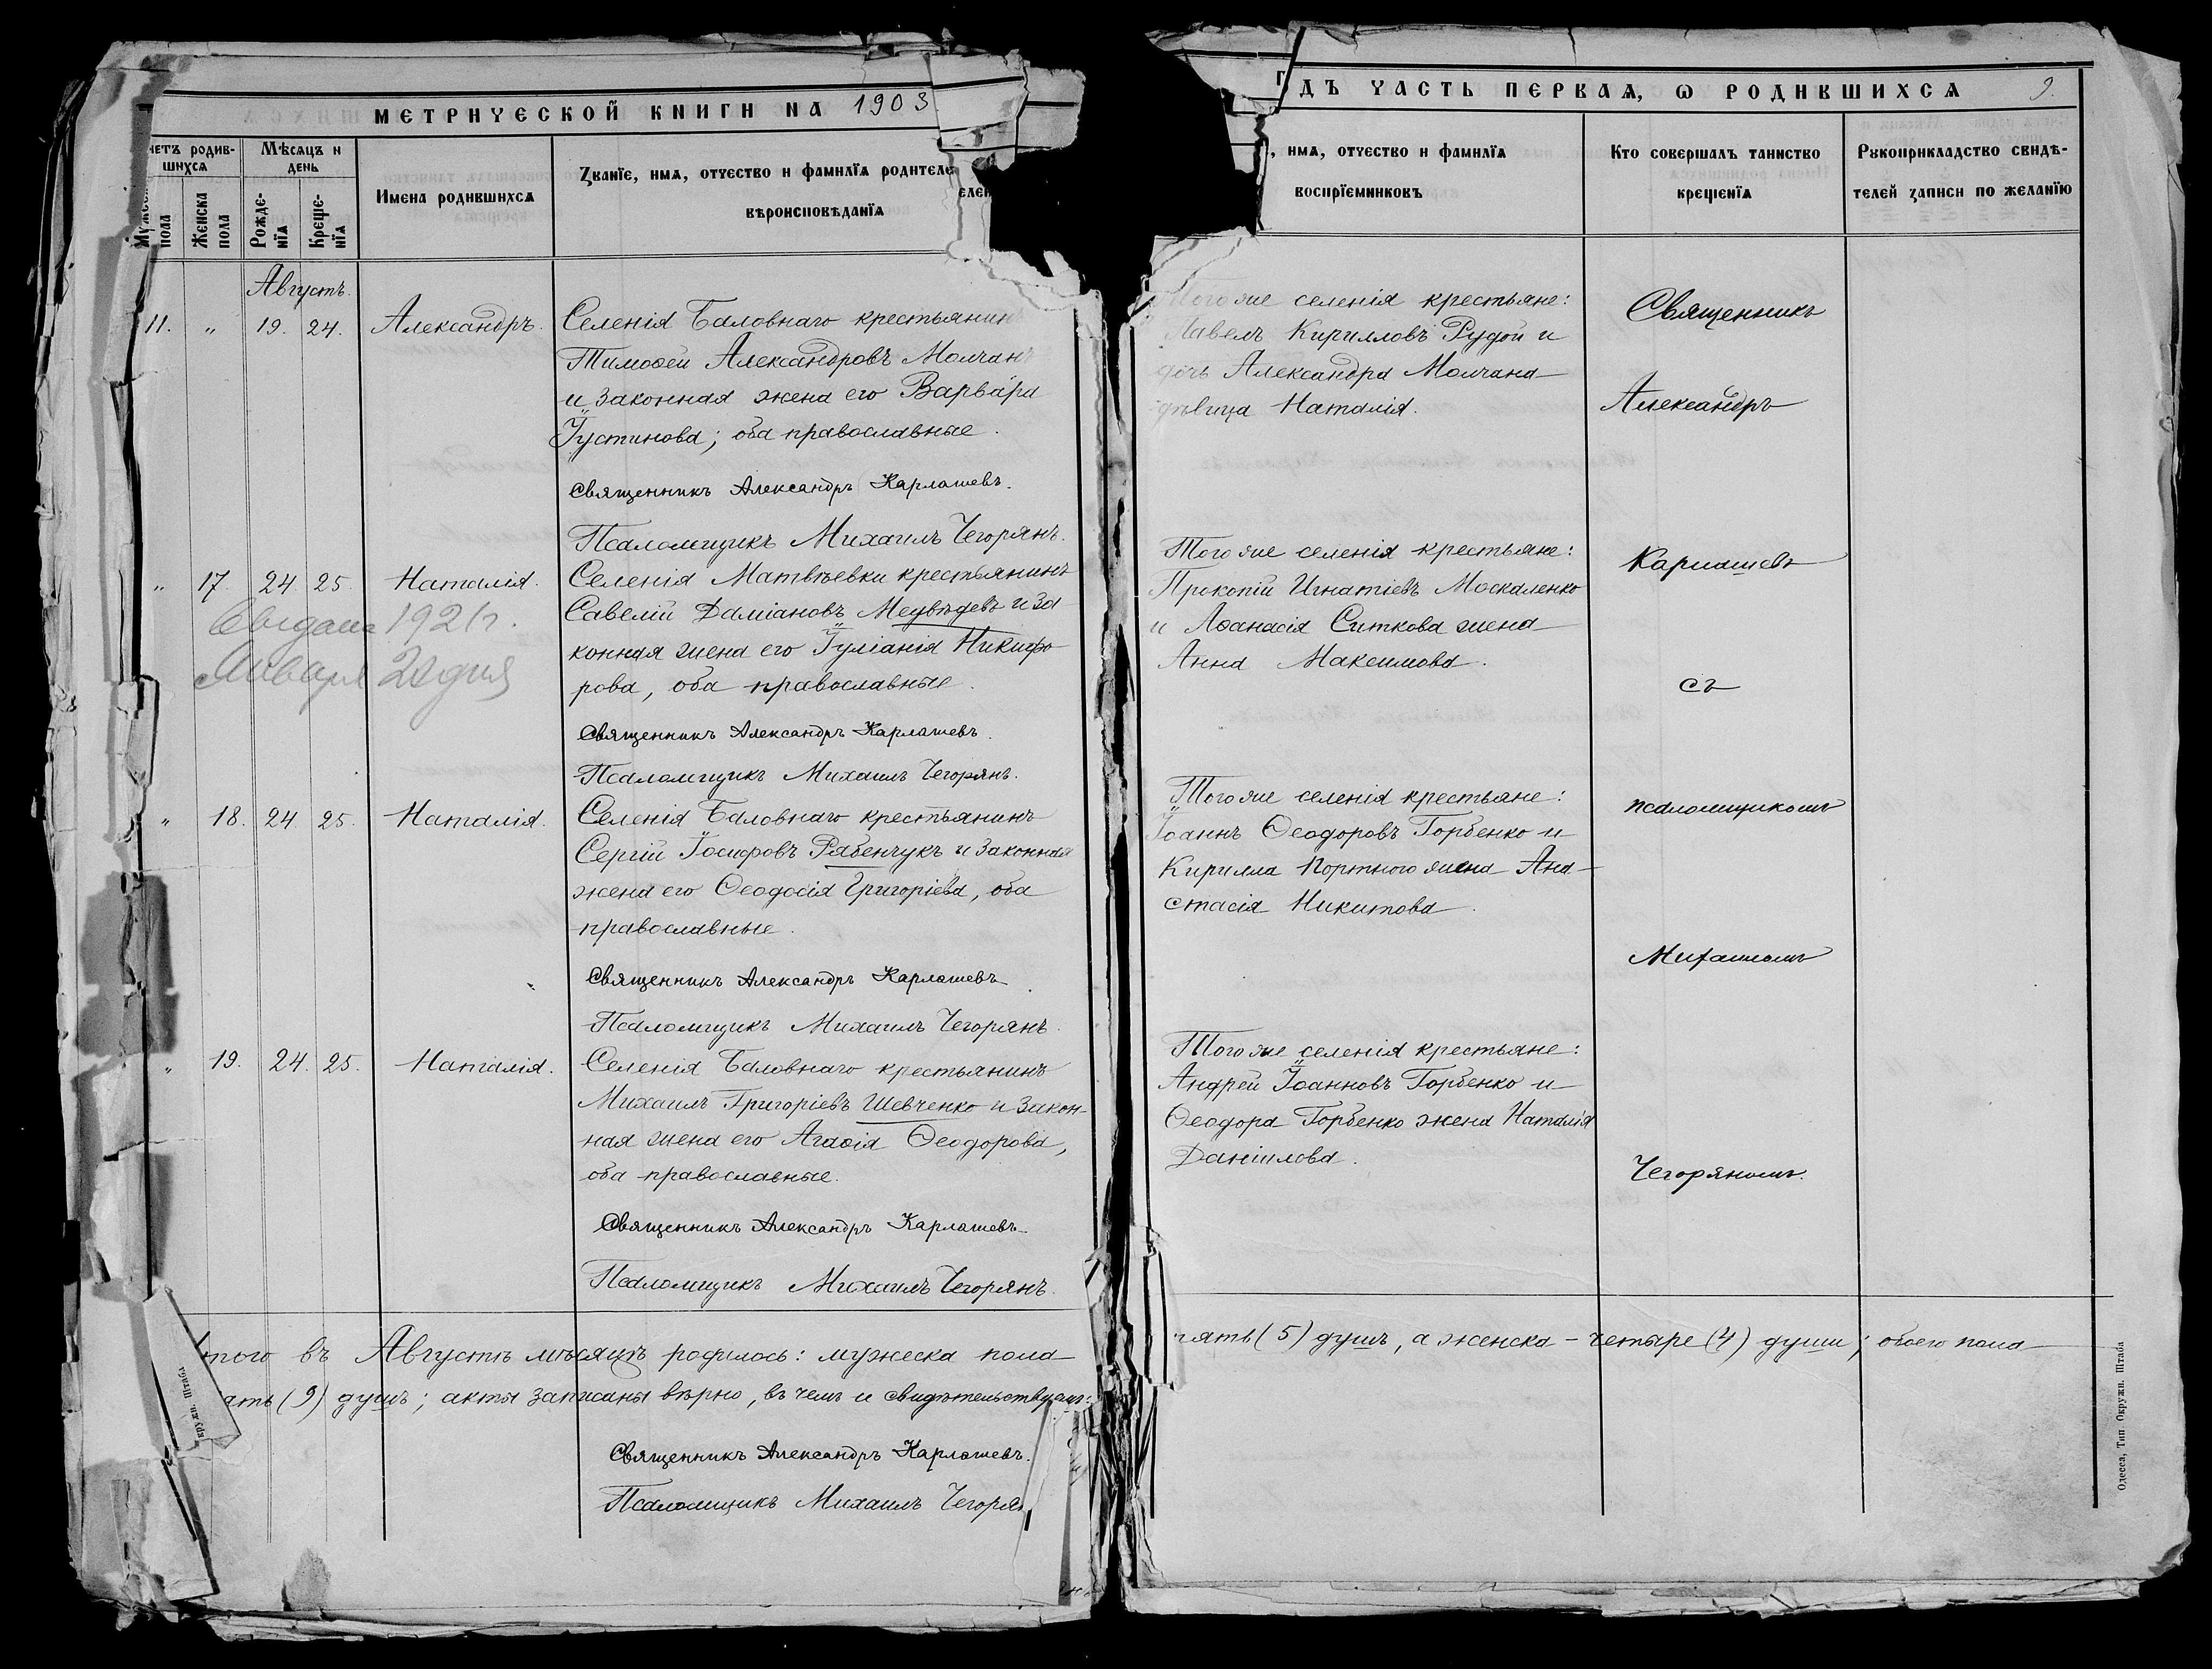 МЕТРИЧЕСКОЙ КНИГИ НА 1903
ДЪ ЧАСТЬ ПЕРВАЯ, Ѡ РОДИВШИХСЯ 9.
четъ родив-
шихся
Мѣсяцъ и
день
Мужеска
пола
Женска
пола
Рожде-
нїя
Креще-
нїя
Имена родившихся
Званїе, имя, отчество и фамилїя родителе
вѣроисповѣданїя
, имя, отчество и фамилїя
воспрїемниковъ
Кто совершалъ таинство
крещенїя
Рукоприкладство свидѣ-
телей записи по желанїю
Августъ.
11. " 19. 24. Александръ.
Селенія Баловнаго крестьянин
Тимоѳей Александровъ Молчан
и законная жена его Варвара
Іустинова; оба православные.
Священникъ Александръ Карлашевъ.
Псаломщикъ Михаилъ Чегорянъ.
Того же селенія крестьяне:
Павелъ Кирилловъ Рудой и
дочь Александра Молчана
дѣвица Наталія.
" 17. 24. 25. Наталія.
Селенія Матвѣевки крестьянинъ
Савелій Даміановъ Медвѣдевъ и за
конная жена его Іуліанія Никифо
рова, оба православные.
Священникъ Александръ Карлашевъ.
Псаломщикъ Михаилъ Чегорянъ.
1921г.
Января 22 дня
Того же селенія крестьяне:
Прокопій Игнатіевъ Москаленко
и Аѳанасія Ситкова жена
Анна Максимова.
" 18. 24. 25. Наталія.
Селенія Баловнаго крестьянинъ
Сергій Іосифовъ Рябенчукъ и законная
жена его Ѳеодосія Григоріева, оба
православные.
Священникъ Александръ Карлашевъ.
Псаломщикъ Михаилъ Чегорянъ.
Того же селенія крестьяне:
Іоаннъ Ѳеодоровъ Горбенко и
Кирилла Портного жена Ана-
стасія Никитова.
" 19. 24. 25. Наталія.
Селенія Баловнаго крестьянинъ
Михаилъ Григоріевъ Шевченко и закон-
ная жена его Агаѳія Ѳеодорова,
оба православные.
Священникъ Александръ Карлашевъ.
Псаломщикъ Михаилъ Чегорянъ.
Того же селенія крестьяне:
Андрей Іоанновъ Горбенко и
Ѳеодора Горбенко жена Наталія
Даніилова.
Священникъ
Александръ
Карлашевъ
съ
псаломщикомъ
Михаиломъ
Чегоряномъ.
того въ Августѣ мѣсяцѣ родилось: мужеска пола пять (5) душъ, а женска - четыре (4) души; обоего пола
ять (9) душъ; акты записаны вѣрно, въ чемъ и свидѣтельствуемъ:
Священникъ Александръ Карлашевъ.
Псаломщикъ Михаилъ Чегорян
Одесса, Тип. Окружн. Штаба
кружн. Штаба